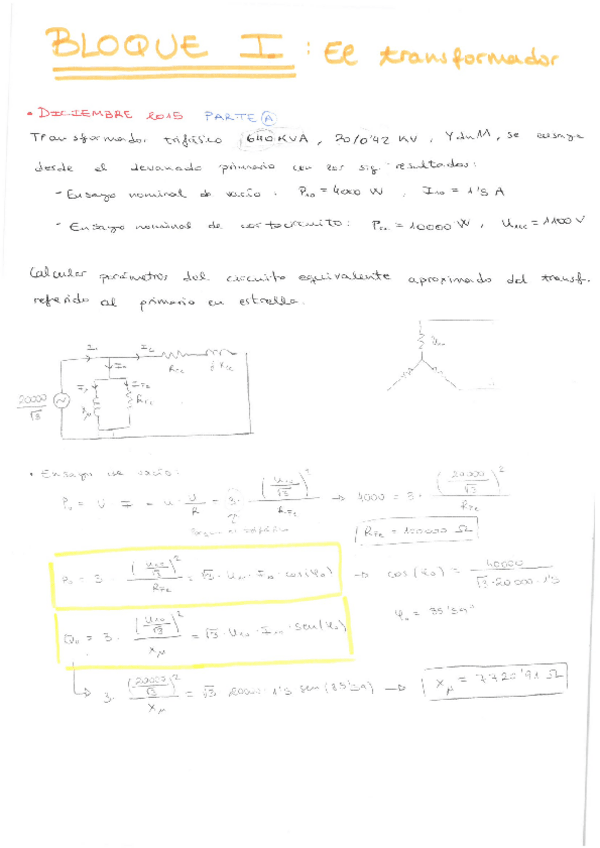 BLOQUE I : El transformador
• DICIEMBRE 2015 PARTE A
Transformador trifásico 640 KVA, 20/0'42 KV, Ydn11, se ensaya
desde el devanado primario con los sig. resultados:
- Ensayo nominal de vacío: P₁₀ = 4000 W , I₁₀ = 1'5 A
- Ensayo nominal de cortocircuito: Pcc = 10000 W , U₁cc = 1100 V
Calcular parámetros del circuito equivalente aproximado del transf.
referido al primario en estrella.
20000/√3
I₀ Rcc jXcc
RFe
Xμ
• Ensayo de vacío:
= 3 · (U₁₀/√3)²/RFe → 4000 = 3 · (20000/√3)²/RFe
RFe = 100000 Ω
P₀ = 3 · (U₁₀/√3)²/RFe = √3 · U₁₀ · I₁₀ · cos(φ₀) → cos(φ₀) = 40000/√3·20000·1'5
φ₀ =
Q₀ = 3 · (U₁₀/√3)²/Xμ = √3 · U₁₀ · I₁₀ · sen(φ₀)
3 · (20000/√3)²/Xμ = √3 20000 · 1'5 sen → Xμ = 7720'91 Ω